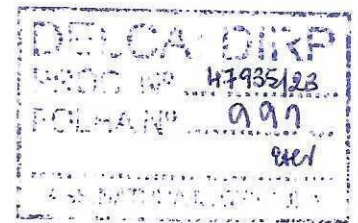 DELCA DIRP
PROC Nº 47935/23
FOLHA Nº 991